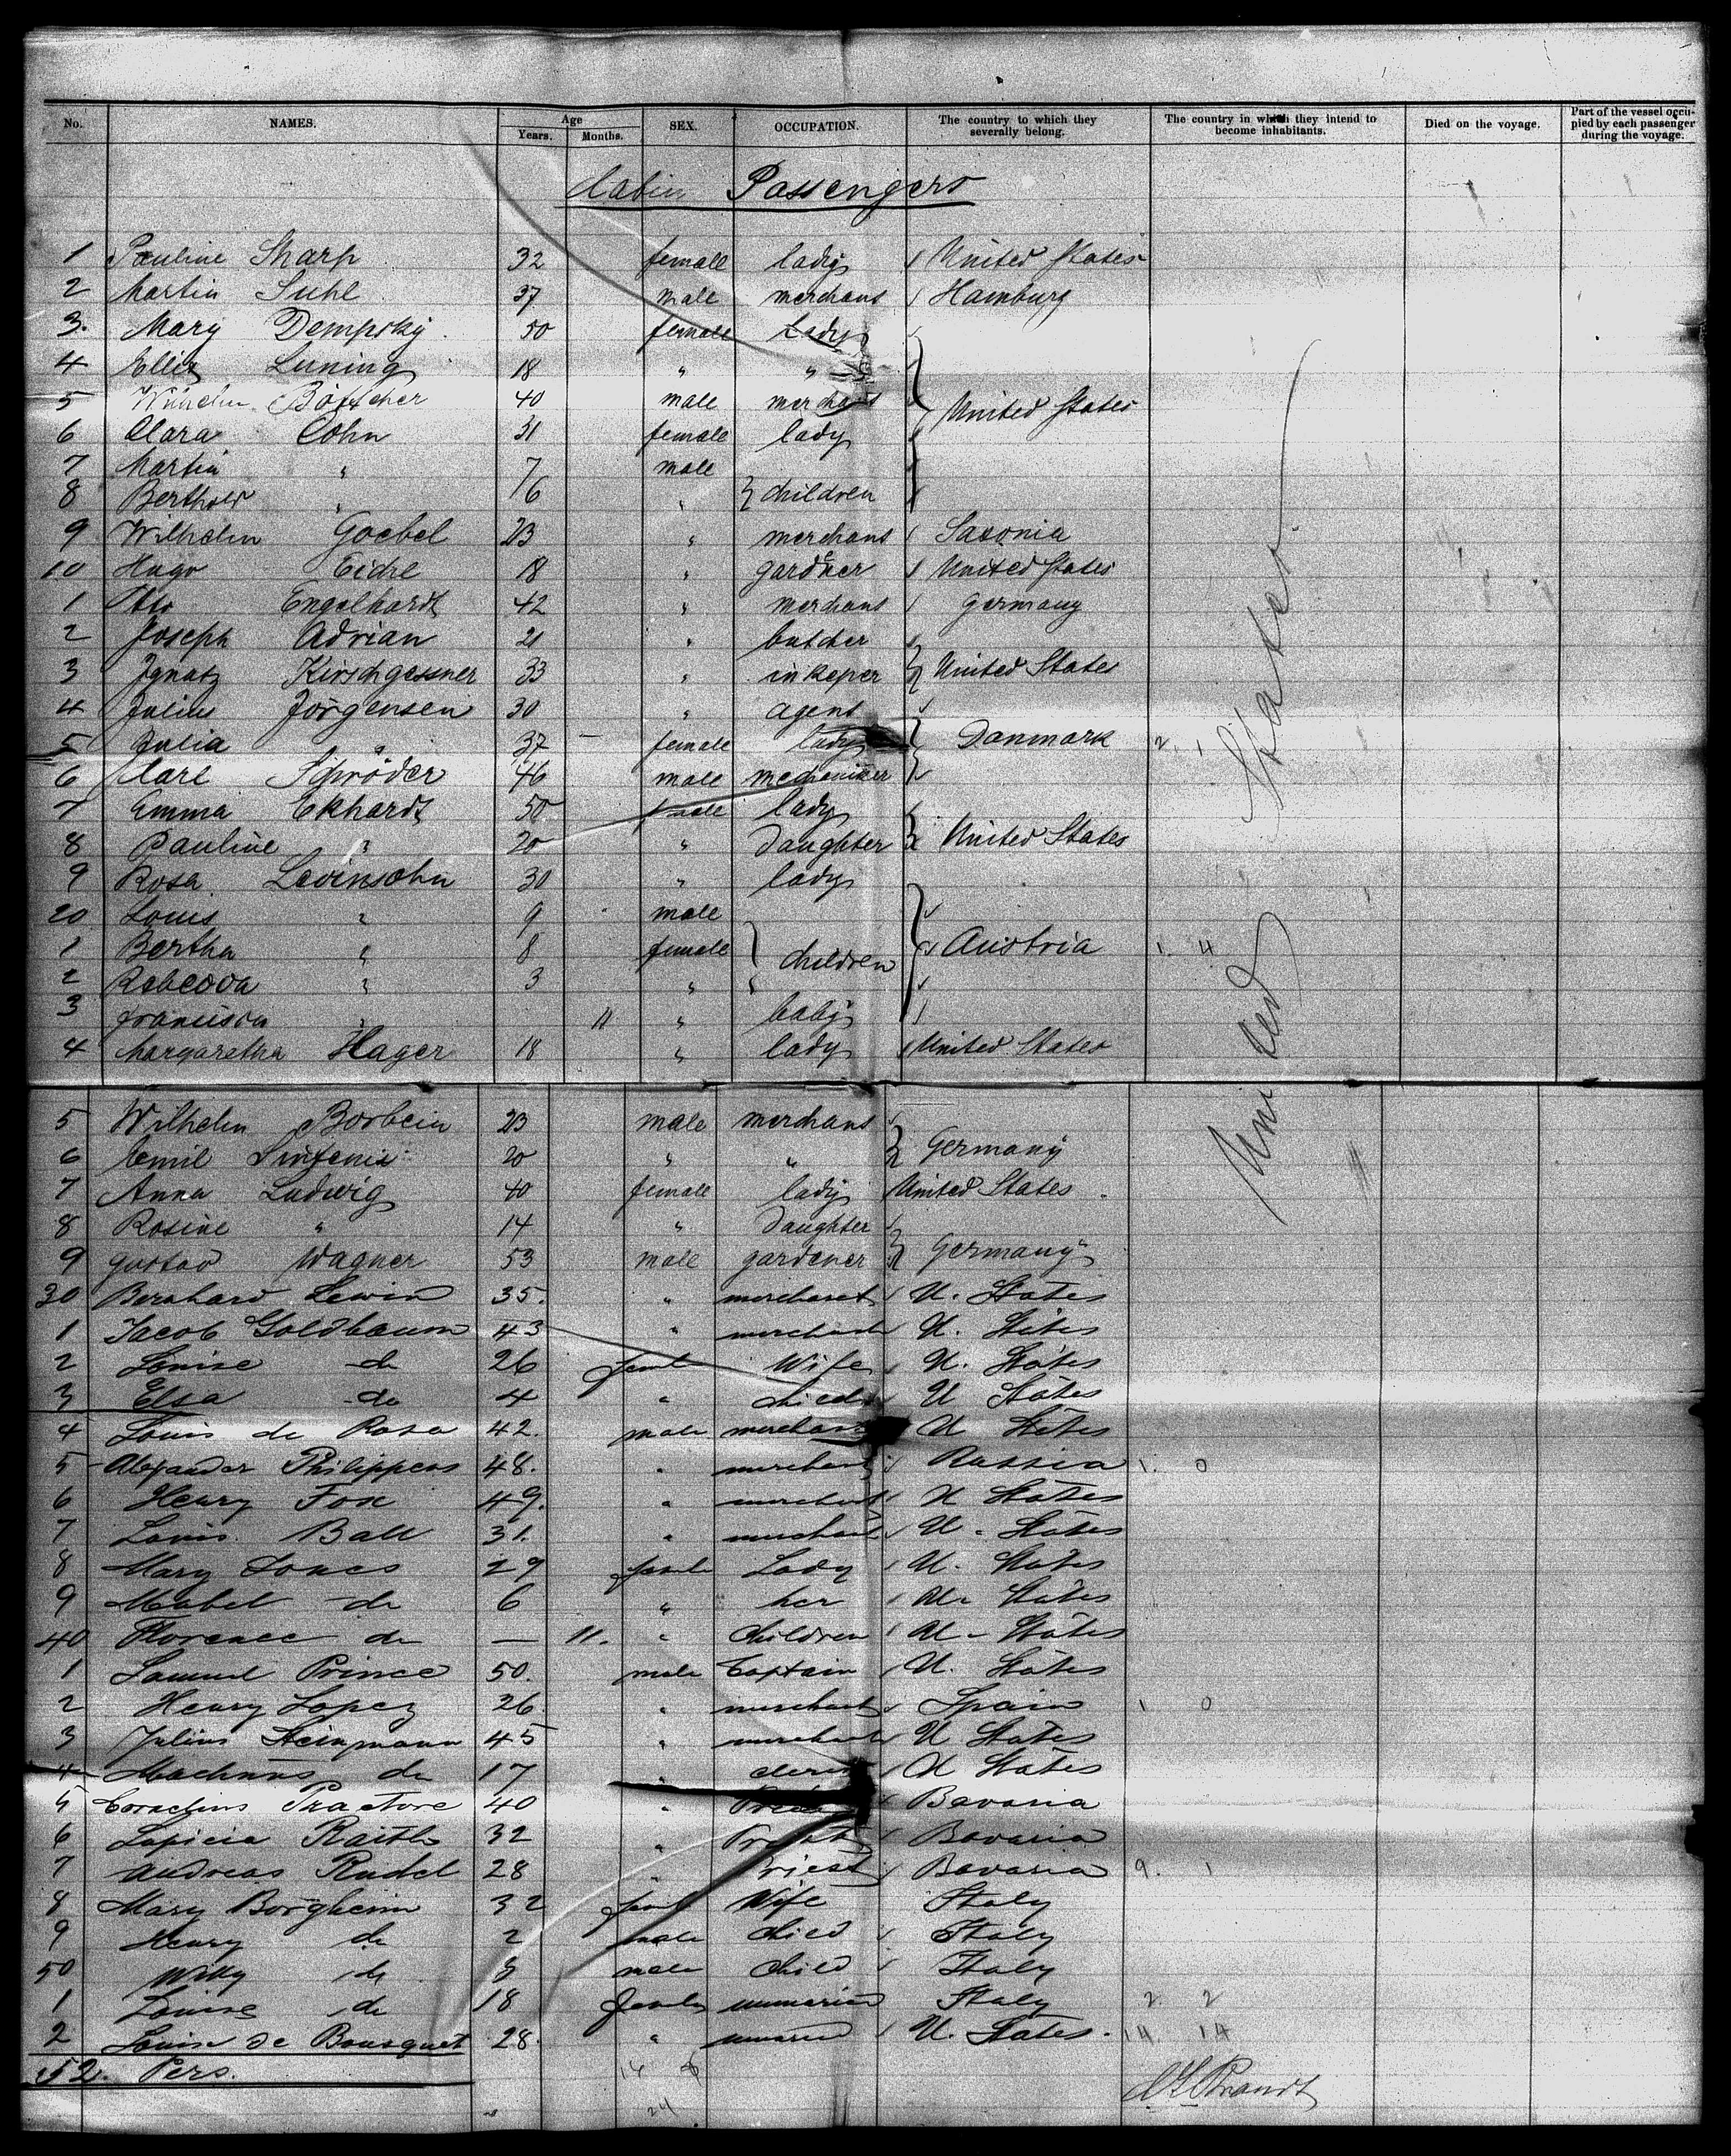 No. NAMES. Age Years. Months. SEX. OCCUPATION. The country to which they severally belong. The country in which they intend to become inhabitants. Died on the voyage. Part of the vessel occupied by each passenger during the voyage.
Cabin Passengers
1 Pauline Sharp 32 female lady United States
2 Martin Suhl 37 male merchant Hamburg
3. Mary Dempsky 50 female Lady
4 Luning 18 " "
5 Wilhelm Böttcher 40 male merchant United States
6 Clara Cohn 31 female lady
7 Martin " 7 male
8 Berthold " 6 " children
9 Wilhelm Goebel 23 " merchant Saxonia
10 Hugo 18 " gardner United States
1 Otto Engelhardt 42 " merchant Germany
2 Joseph Adrian 21 " butcher
3 Ignatz Kirschgessner 33 " inkeper United States
4 Julius Jörgensen 30 " agent
5 Julia " 37 female lady Danmark 2. 1
6 Carl Schröder 46 male mechaniker
7 Emma Ekhardt 50 female lady
8 Pauline " 20 " Daughter United States
9 Rosa Levinsohn 30 " lady
20 Louis " 9 male
1 Bertha " 8 female children Austria 1. 4
2 Rebecca " 3 "
3 Francisca " 11 " baby
4 Margaretha Hager 18 " lady United States
United States
5 Wilhelm Borbein 23 male merchant
6 Emil Sintenis 20 " " Germany
7 Anna Ludwig 40 female lady United States
8 Rosine " 14 " Daughter
9 Gustav Wagner 53 male gardener Germany
30 Bernhard Lewin 35. " merchant U. States
1 Jacob Goldbaum 43 " merchant U. States
2 Louise do 26 female Wife U. States
3 Elsa do 4 " child U States
4 Louis de Rosa 42. male merchant U States
5 Alexander Philippeus 48. " merchant Russia 1. 0
6 Henry Fox 49. " merchant U States
7 Louis Ball 31. " merchant U. States
8 Mary Jones 29 female Lady U. States
9 Mabel do 6 " her U. States
40 Florence do — 11. " Children U. States
1 Samuel Prince 50. male Captain U. States
2 Henry Lopez 26. " merchant Spain 1 0
3 Julius Steinmann 45 " merchant U States
4 do 17 " clerk U States
5 Cornelius 40 " Priest Bavaria
6 Raith 32 " Priest Bavaria
7 Andreas Rudel 28 " Priest Bavaria 9. 1
8 Mary Borgheim 32 female Wife Italy
9 Henry do 2 male Child Italy
50 Willy do 3 male Child Italy
1 Louise do 18 female unmarried Italy 2. 2
2 Louise de Bousquet 28. " U. States. 14 14
52. Pers. 14
24
Brandt